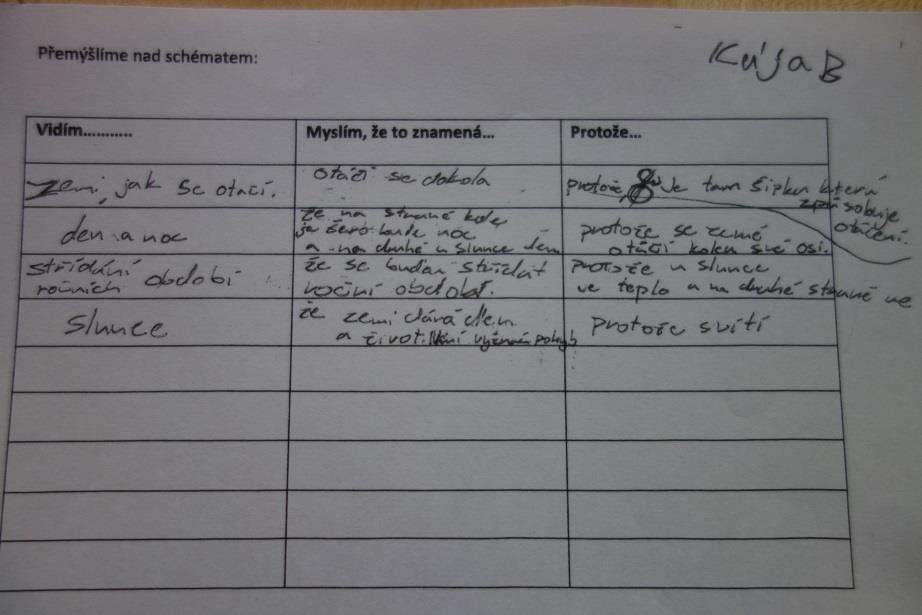 Přemýšlíme nad schématem:
Kája B
Vidím...........
Myslím, že to znamená...
Protože...
Zemi, jak se otačí.
otáčí se dokola
protože, je tam šipka která
způsobuje
otáčení.
den a noc
že na straně kde
je šero bude noc
a na druhé u slunce den
protože se země
otáčí kolem své osi.
střídání
ročních období
že se budou střídat
roční období.
protože u slunce
je teplo a na druhé straně ne
Slunce
že zemi dává den
a život. Není význam pohyb
protože svítí